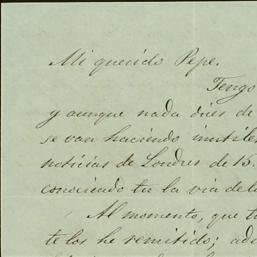 Mi querido Pepe.
Tengo
y aunque nada dices de
se van haciendo inutile
noticias de Londres de 15.
conociendo tu la via de
Al momento, que t
te los he remitido; ad